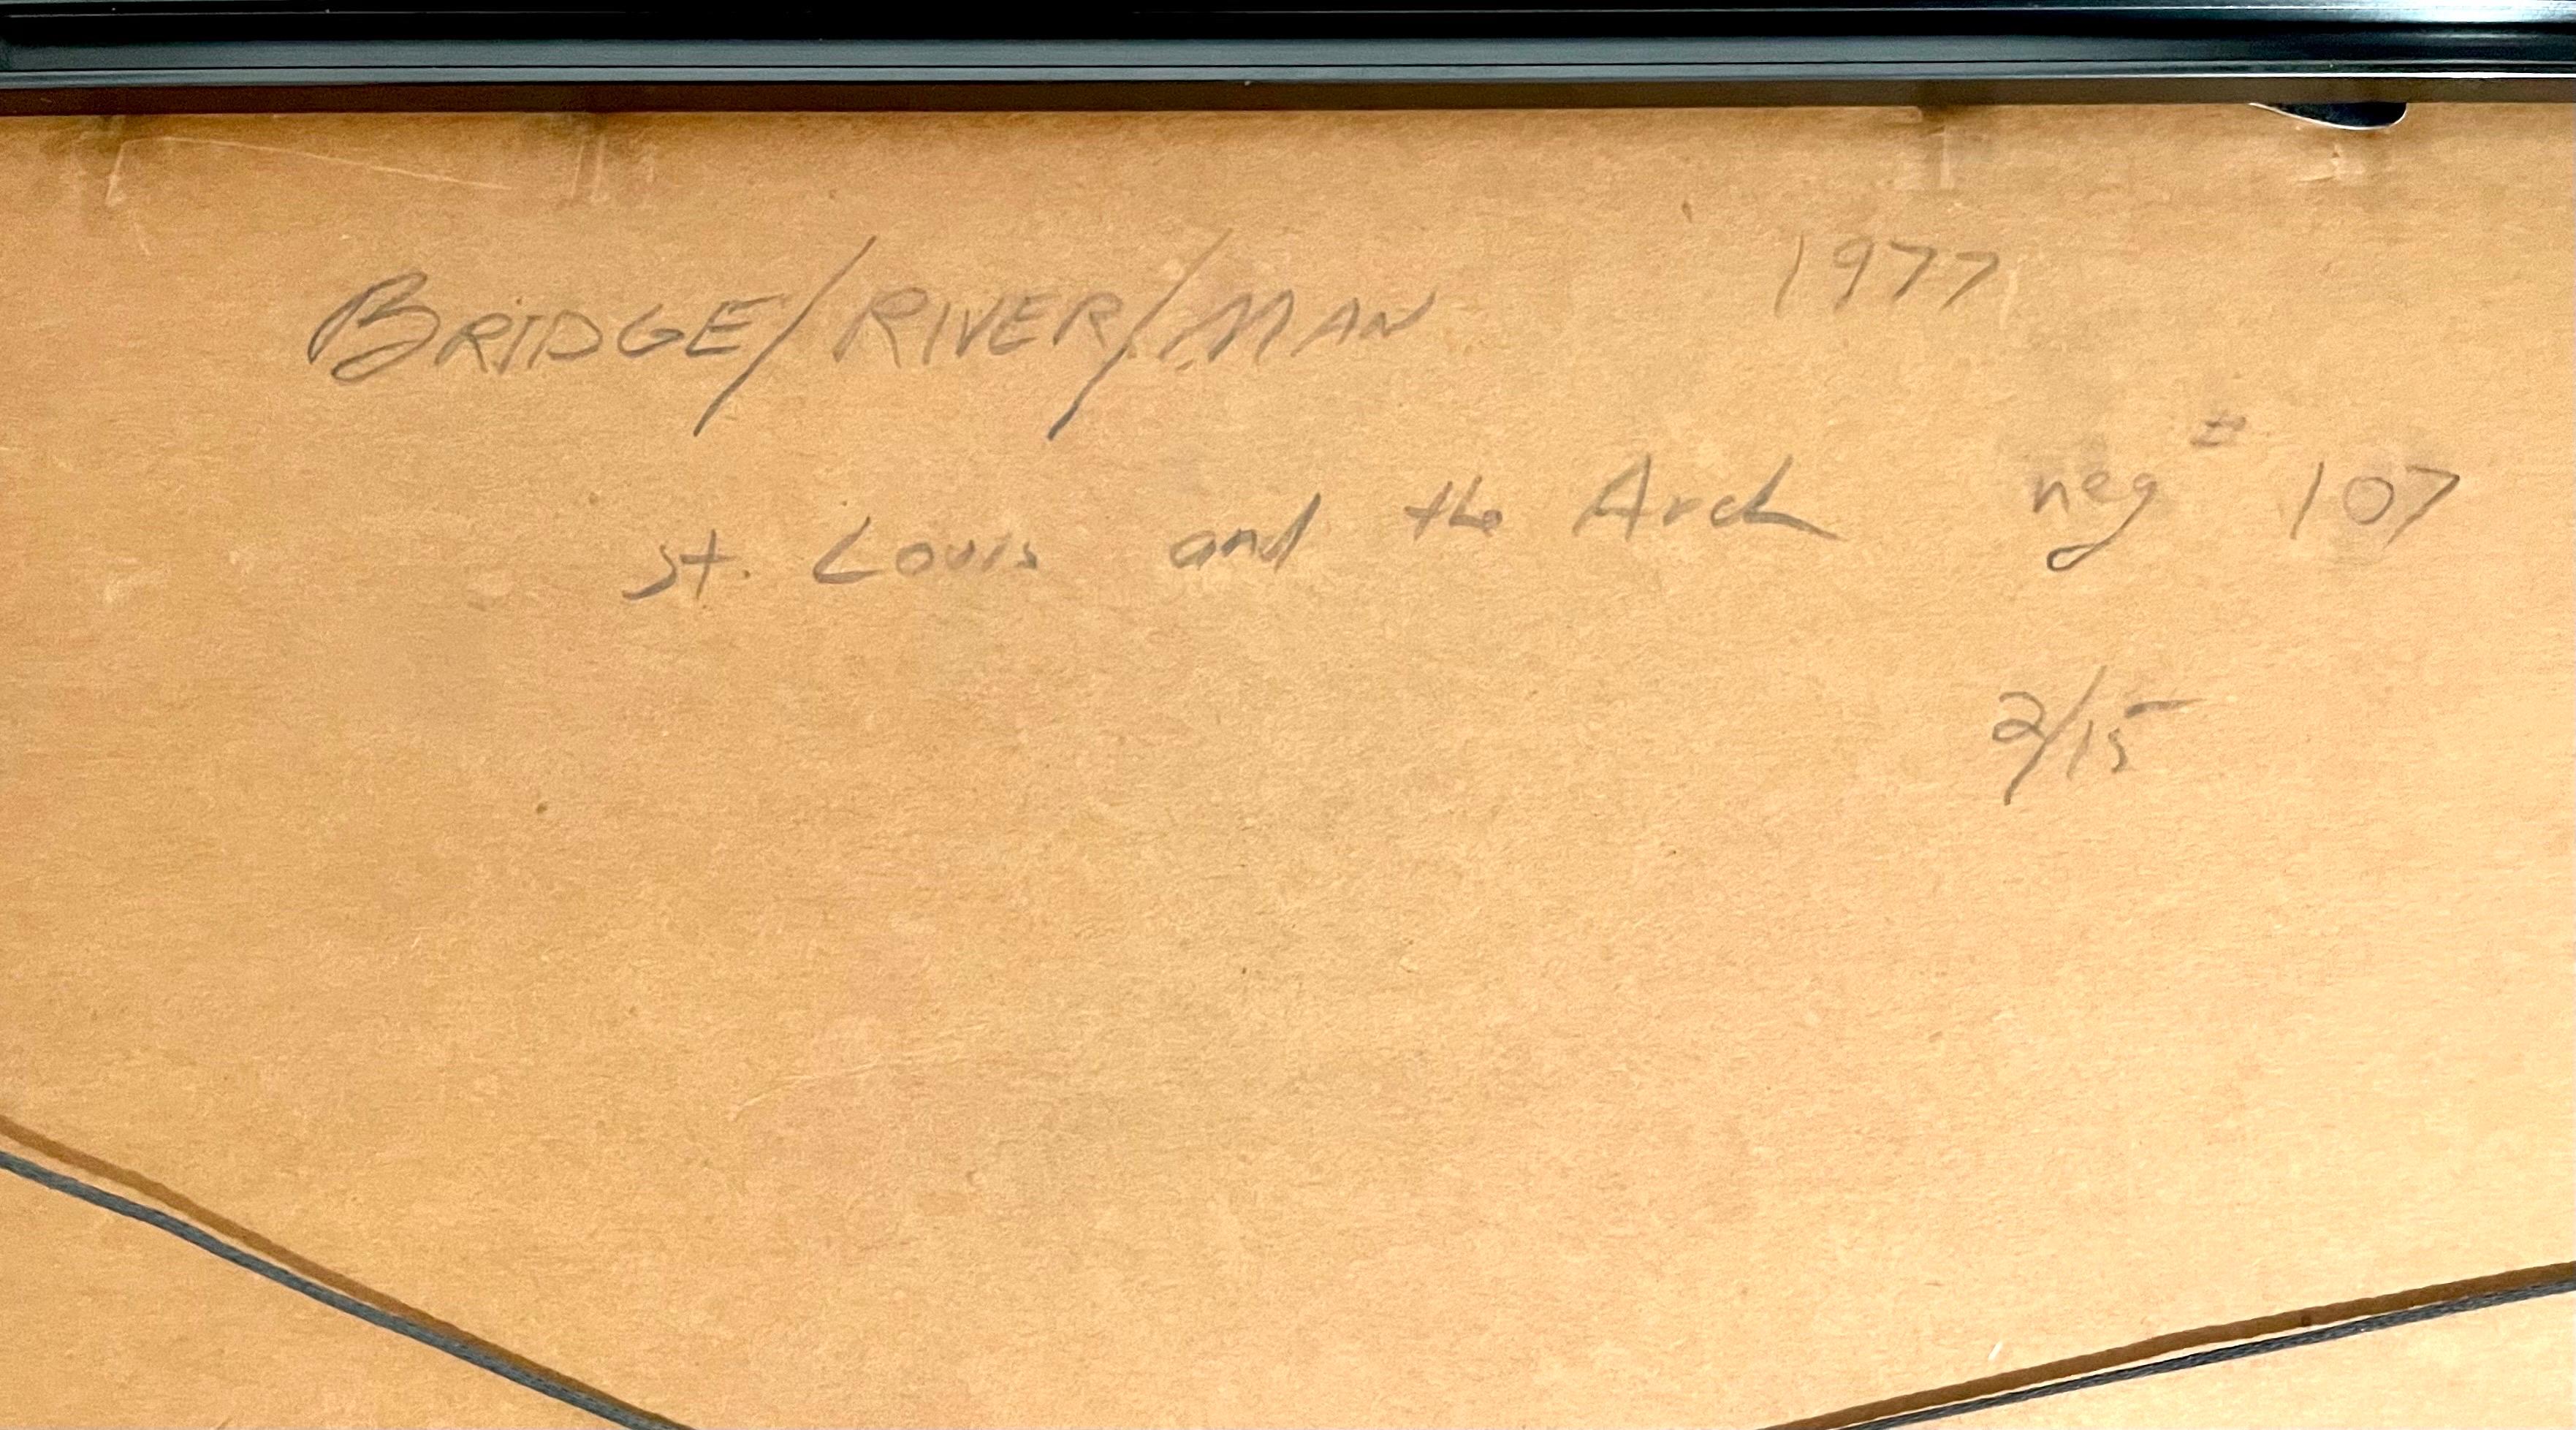 BRIDGE/RIVER/MAN 1977
St. Louis and the Arch neg # 107
2/15